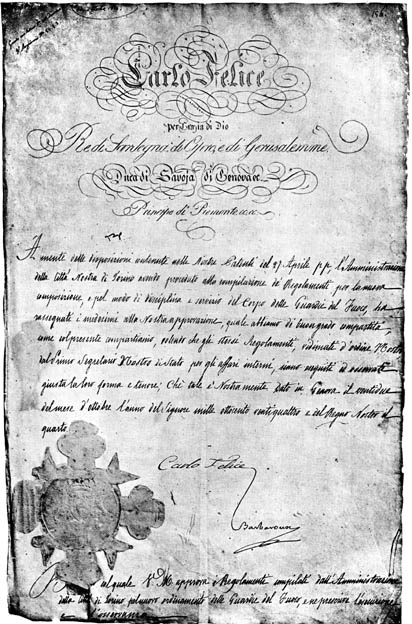 Carlo Felice
per Grazia di Dio
Re di Sardegna, di Cipro, e di Gerusalemme,
Duca di Savoja, di Genova ec.
Principe di Piemonte ec. ec.
A mente delle disposizioni contenute nelle Nostre Patenti del 27 Aprile p.p., l'Amministrazione
della Città Nostra di Torino avendo proceduto alla compilazione de' Regolamenti per la nuova
composizione, e pel modo di disciplina e servizio del Corpo delle Guardie del Fuoco, ha
rassegnate i medesimi alla Nostra approvazione, quale abbiamo di buon grado compartita,
come colpresente compartiamo, volendo che gli stessi Regolamenti, vidimati d'ordine Nostro
dal Primo Segretaro Nostro di Stato per gli affari interni, siano eseguiti ed osservati
giusta la loro forma e tenore; Ché tale è Nostra mente. Dato in Genova il ventidue
del mese d'ottobre l'anno del Signore mille ottocento ventiquattro e del Regno Nostro il
quarto.
Carlo Felice
Barbaroux
col quale V. M. approva i Regolamenti compilati dall'Amministrazione
della città di Torino pel nuovo ordinamento delle Guardie del Fuoco, e ne prescrive l'esecuzione
e l'osservanza